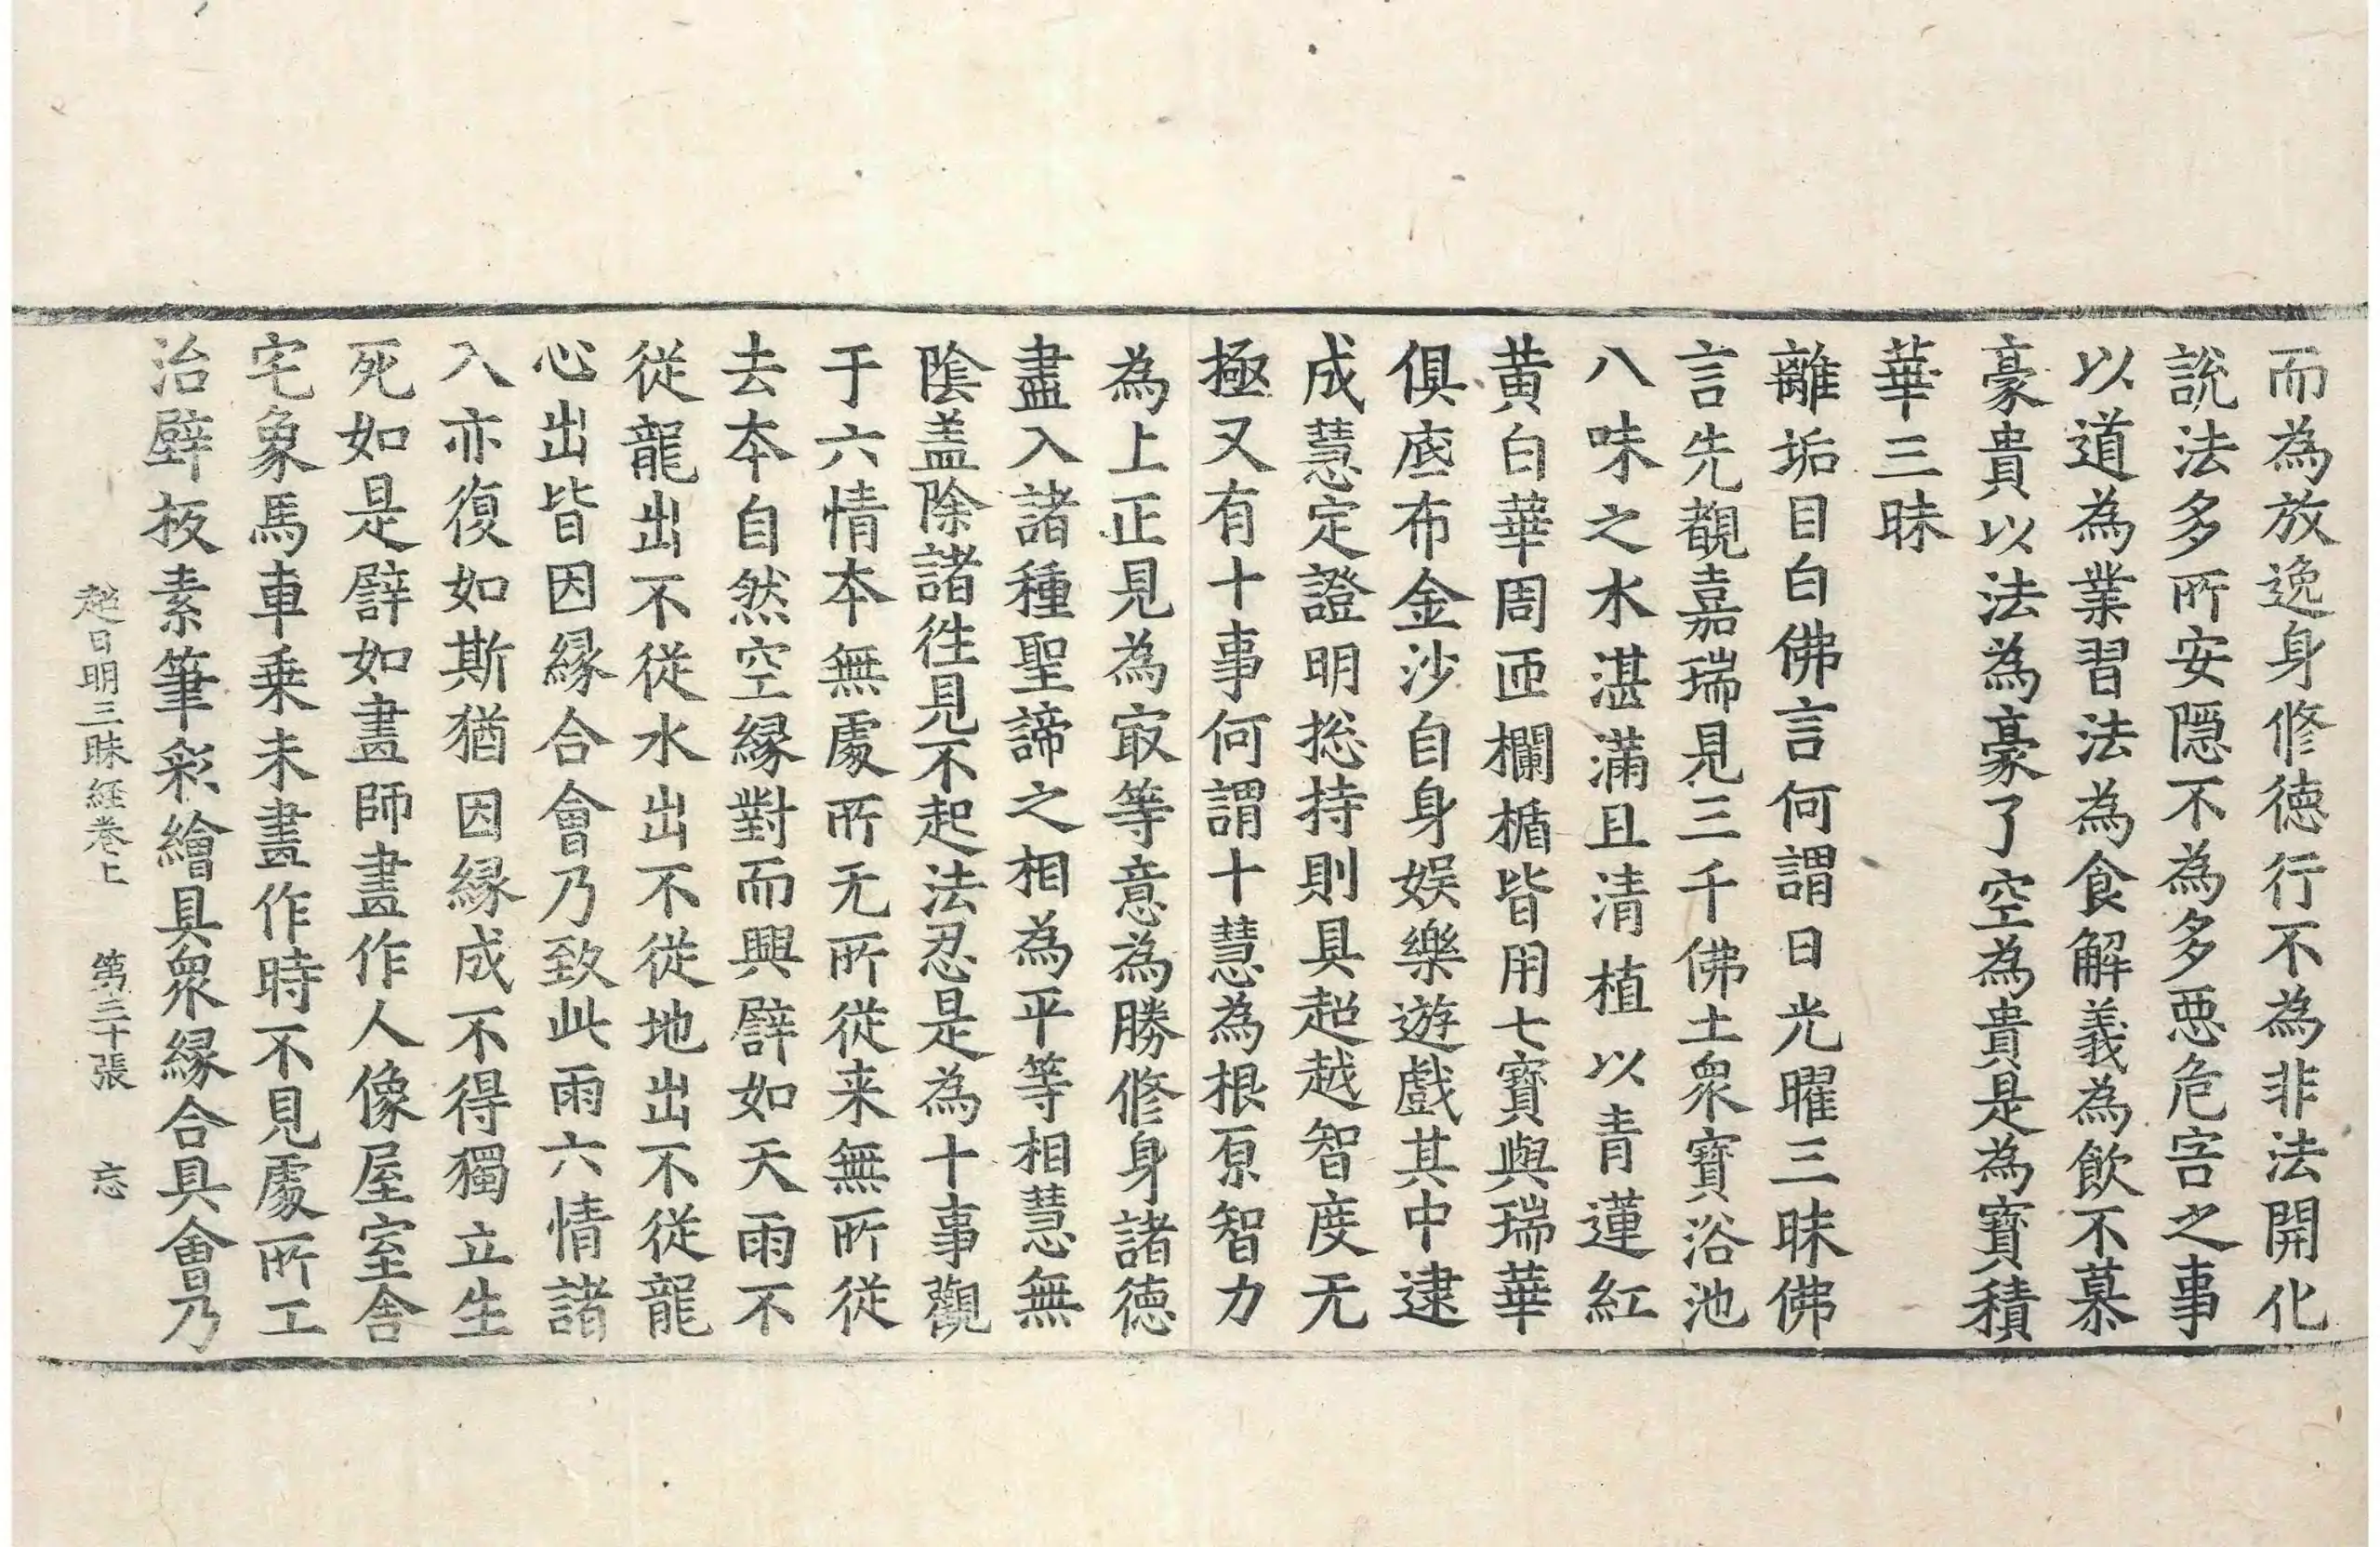 而為放逸身修德行不為非法開化
說法多所安隱不為多惡危害之事
以道為業習法為食解義為飲不慕
豪貴以法為豪了空為貴是為寶積
華三昧
離垢目白佛言何謂日光曜三昧佛
言先覩嘉瑞見三千佛土眾寶浴池
八味之水湛滿且清植以青蓮紅
黃白華周匝欄楯皆用七寶與瑞華
俱底布金沙自身娛樂遊戲其中逮
成慧定證明捴持則具超越智度无
極又有十事何謂十慧為根原智力
為上正見為㝡等意為勝修身諸德
盡入諸種聖諦之相為平等相慧無
陰盖除諸徃見不起法忍是為十事觀
于六情本無處所无所從来無所從
去本自然空緣對而興譬如天雨不
從龍出不從水出不從地出不從龍
心出皆因緣合會乃致此雨六情諸
入亦復如斯猶因緣成不得獨立生
死如是譬如畫師畫作人像屋室舍
宅象馬車乘未畫作時不見處所工
治壁板素筆彩繪具眾緣合具會乃
超日明三昧経卷上 第三十張 忘